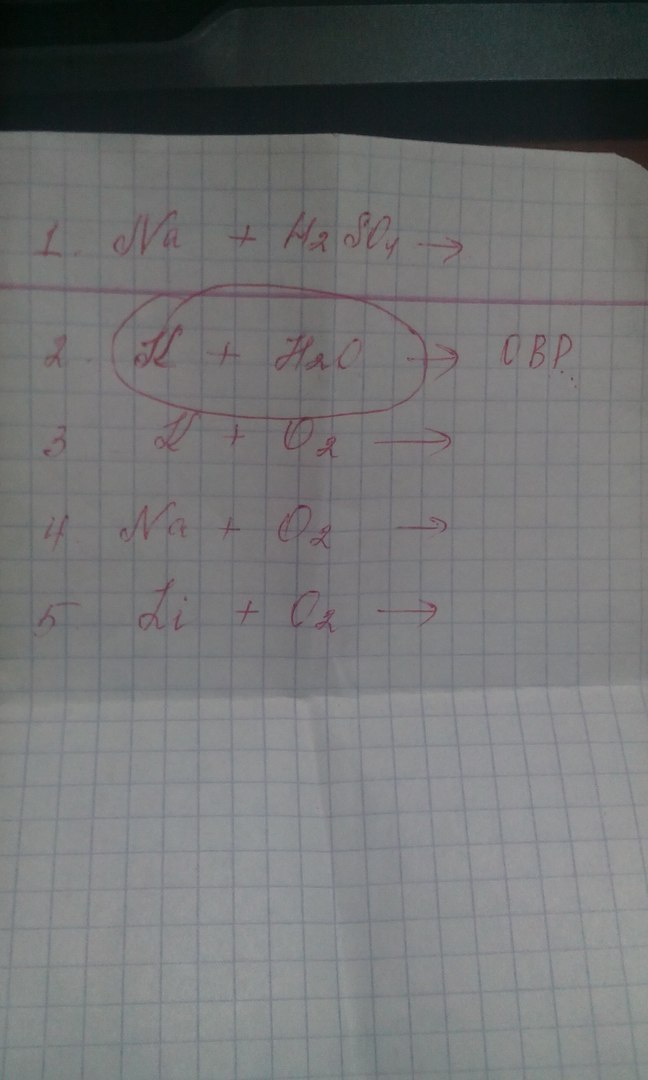 1. Na + H2SO4 →
2. K + H2O → ОВР..
3 K + O2 →
4 Na + O2 →
5 Li + O2 →